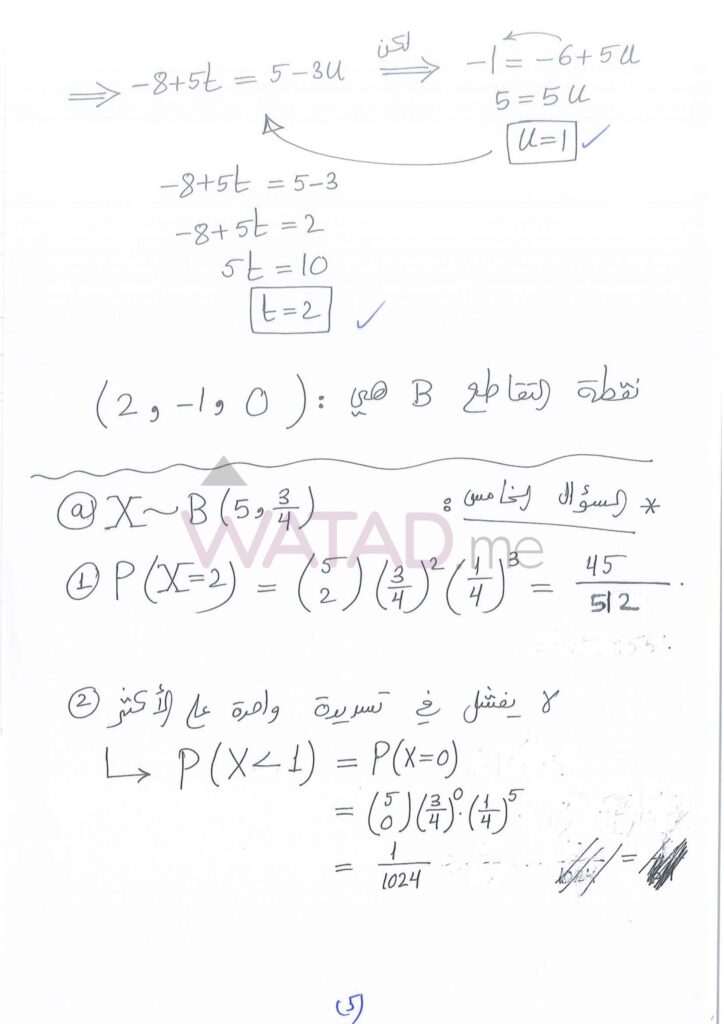 ⟹ -8+5t = 5-3u ⟹ لكن -1 = -6+5u
5 = 5u
u=1 ✓
-8+5t = 5-3
-8+5t = 2
5t = 10
t=2 ✓
نقطة التقاطع B هي : (2, -1, 0)
* السؤال الخامس :
ⓐ X~B(5, 3/4)
WATAD.me
① P(X=2) = (5 2)(3/4)^2(1/4)^3 = 45/512
② لا يفشل في تسديدة واحدة على الأكثر
↳ P(X<1) = P(X=0)
= (5 0)(3/4)^0·(1/4)^5
= 1/1024
(5)